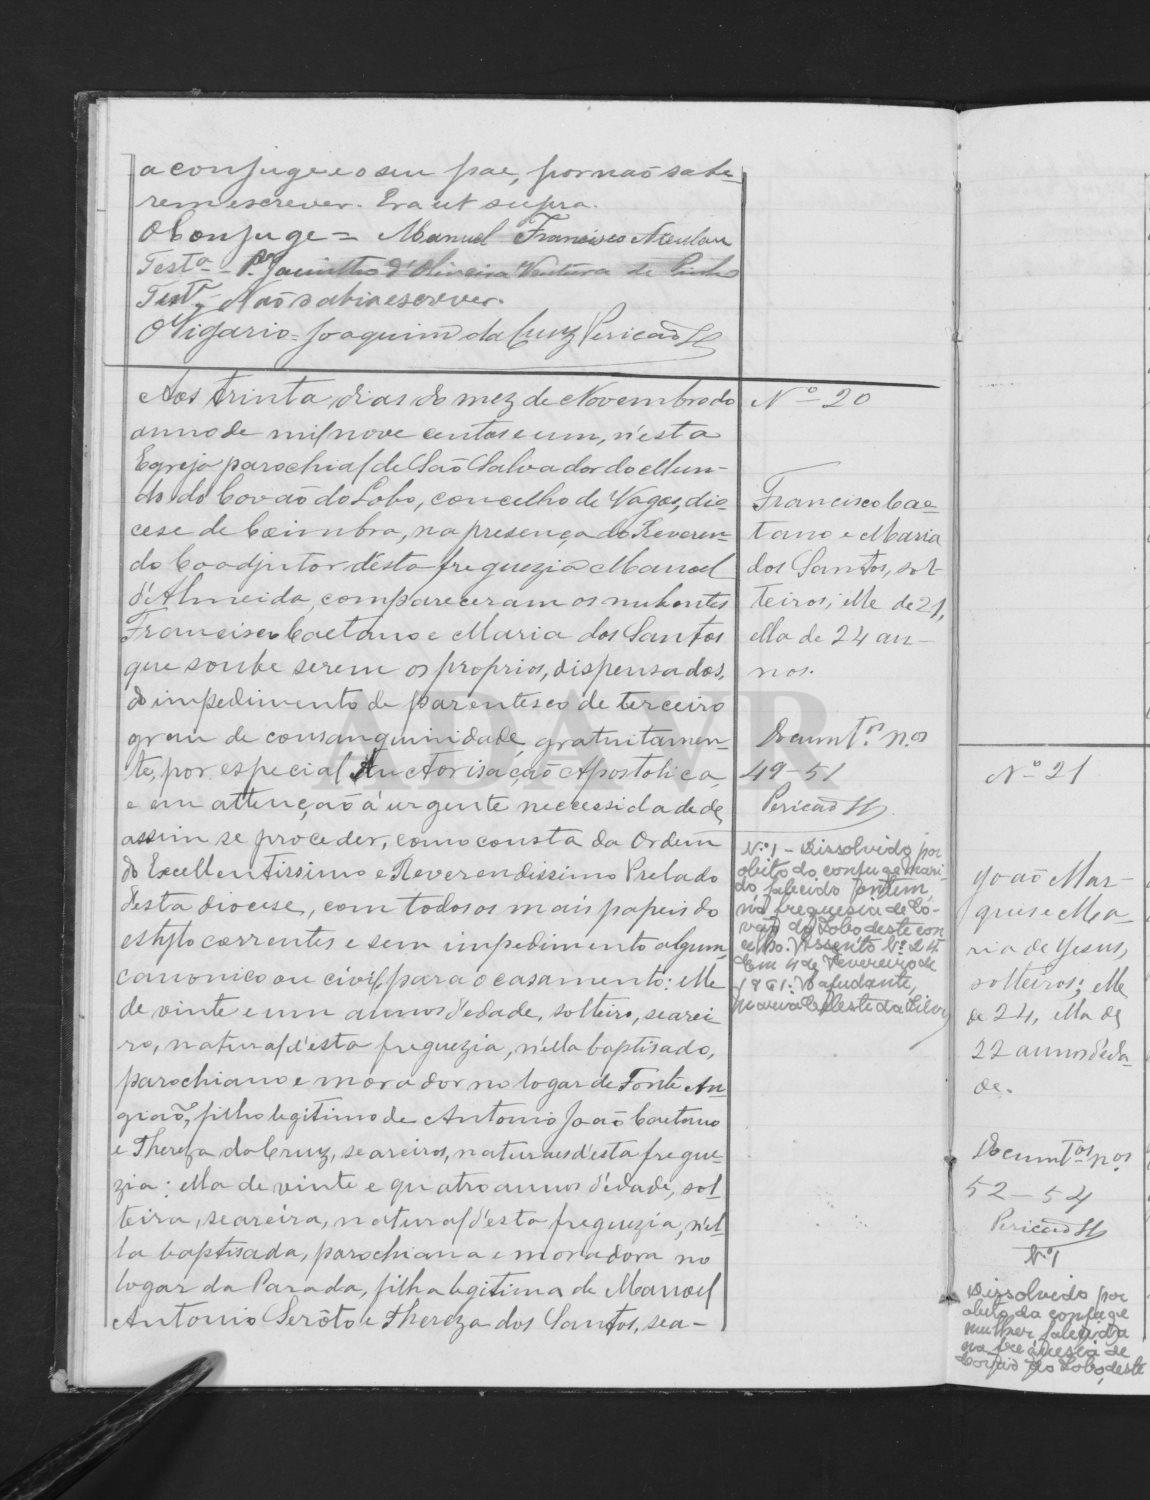 a conjuge e o seu pae, por não sabe-
rem escrever. Era ut supra.
O Conjuge = Manuel Francisco
Testa - Pe Jacintho d'Oliveira Ventura de Pinho
Testa - Não sabia escrever.
O Vigario = Joaquim da Cruz Pericão
Aos trinta dias do mez de Novembro do
anno de mil nove centos e um, n'esta
Egreja parochial de São Salvador do Mun-
do do Covão do Lobo, concelho de Vagos, dio-
cese de Coimbra, na presença do Reveren-
do Coadjutor d'esta freguezia Manoel
d'Almeida, compareceram os nubentes
Francisco Caetano e Maria dos Santos
que soube serem os proprios, dispensados,
do impedimento de parentesco de terceiro
grau de consanguinidade, gratuitamen-
te, por especial Auctorisação Apostolica,
e em attenção á urgente necessidade de
assim se proceder, como consta da Ordem
do Excellentissimo e Reverendissimo Prelado
d'esta diocese, com todos os mais papeis do
estylo correntes e sem impedimento algum,
canonico ou civil para o casamento: elle
de vinte e um annos d'edade, solteiro, searei-
ro, natural d'esta freguezia, n'ella baptisado,
parochiano e morador no logar de Fonte An-
gião, filho legitimo de Antonio João Caetano
e Thereza da Cruz, seareiros, naturaes d'esta fregue-
zia: ella de vinte e quatro annos d'edade, sol-
teira, seareira, natural d'esta freguezia, n'el-
la baptisada, parochiana e moradora no
logar da Parada, filha legitima de Manoel
Antonio Serôto e Thereza dos Santos, sea-
Nº 20
Francisco Cae-
tano e Maria
dos Santos, sol-
teiros; elle de 21,
ella de 24 an-
nos.
Documt.os n.os
49-51
Pericão
N.º 1 - Dissolvido por
obito do conjuge mari-
do falecido
na freguesia de Co-
vão do Lobo deste con-
celho. Assento N.º 24
Em 4 de Fevereiro de
1961. O ajudante,
Maria Celeste da Silva
ADAVR
Nº 21
João Mar-
ques e Ma-
ria de Jesus,
solteiros; elle
de 24, ella de
22 annos d'eda-
de.
Documt.os n.os
52-54
Pericão
N.º 1
Dissolvido por
obito da conjuge
mulher falecida
na freguesia de
Covão do Lobo, deste